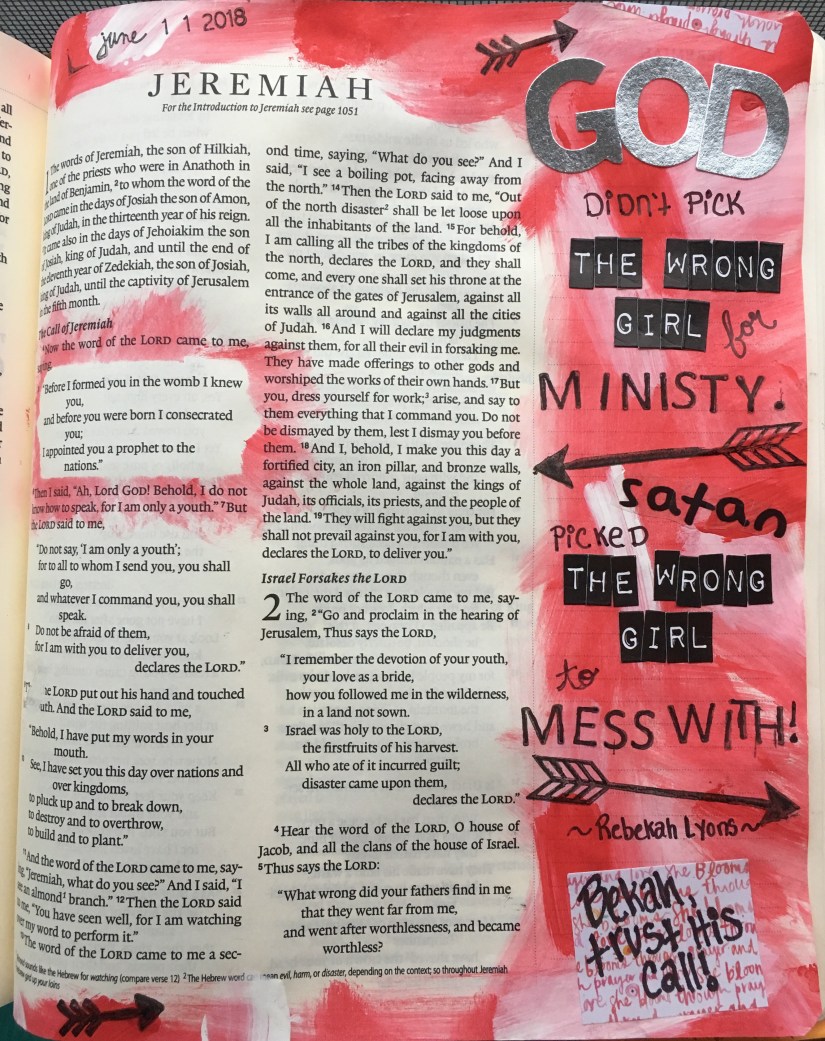 June 11 2018
JEREMIAH
For the Introduction to Jeremiah see page 1051
The words of Jeremiah, the son of Hilkiah,
one of the priests who were in Anathoth in
the land of Benjamin, 2 to whom the word of the
LORD came in the days of Josiah the son of Amon,
king of Judah, in the thirteenth year of his reign.
It came also in the days of Jehoiakim the son
of Josiah, king of Judah, and until the end of
the eleventh year of Zedekiah, the son of Josiah,
king of Judah, until the captivity of Jerusalem
in the fifth month.
The Call of Jeremiah
Now the word of the LORD came to me,
saying,
"Before I formed you in the womb I knew
you,
and before you were born I consecrated
you;
I appointed you a prophet to the
nations."
Then I said, "Ah, Lord GOD! Behold, I do not
know how to speak, for I am only a youth." 7 But
the LORD said to me,
"Do not say, 'I am only a youth';
for to all to whom I send you, you shall
go,
and whatever I command you, you shall
speak.
Do not be afraid of them,
for I am with you to deliver you,
declares the LORD."
he LORD put out his hand and touched
uth. And the LORD said to me,
"Behold, I have put my words in your
mouth.
See, I have set you this day over nations and
over kingdoms,
to pluck up and to break down,
to destroy and to overthrow,
to build and to plant."
11 And the word of the LORD came to me, say-
ing, "Jeremiah, what do you see?" And I said, "I
see an almond1 branch." 12 Then the LORD said
to me, "You have seen well, for I am watching
over my word to perform it."
The word of the LORD came to me a sec-
ond time, saying, "What do you see?" And I
said, "I see a boiling pot, facing away from
the north." 14 Then the LORD said to me, "Out
of the north disaster2 shall be let loose upon
all the inhabitants of the land. 15 For behold,
I am calling all the tribes of the kingdoms of
the north, declares the LORD, and they shall
come, and every one shall set his throne at the
entrance of the gates of Jerusalem, against all
its walls all around and against all the cities
of Judah. 16 And I will declare my judgments
against them, for all their evil in forsaking me.
They have made offerings to other gods and
worshiped the works of their own hands. 17 But
you, dress yourself for work;3 arise, and say to
them everything that I command you. Do not
be dismayed by them, lest I dismay you before
them. 18 And I, behold, I make you this day a
fortified city, an iron pillar, and bronze walls,
against the whole land, against the kings of
Judah, its officials, its priests, and the people of
the land. 19 They will fight against you, but they
shall not prevail against you, for I am with you,
declares the LORD, to deliver you."
Israel Forsakes the LORD
2 The word of the LORD came to me, say-
ing, 2 "Go and proclaim in the hearing of
Jerusalem, Thus says the LORD,
"I remember the devotion of your youth,
your love as a bride,
how you followed me in the wilderness,
in a land not sown.
3 Israel was holy to the LORD,
the firstfruits of his harvest.
All who ate of it incurred guilt;
disaster came upon them,
declares the LORD."
4 Hear the word of the LORD, O house of
Jacob, and all the clans of the house of Israel.
5 Thus says the LORD:
"What wrong did your fathers find in me
that they went far from me,
and went after worthlessness, and became
worthless?
sounds like the Hebrew for watching (compare verse 12) 2 The Hebrew word can mean evil, harm, or disaster, depending on the context; so throughout Jeremiah
gird up your loins
GOD
DiDn't PicK
THE WRONG
GIRL for
MINISTY.
satan
PicKED
THE WRONG
GIRL
to
MESS WITH!
~Rebekah Lyons~
Bekah,
trust His
call!